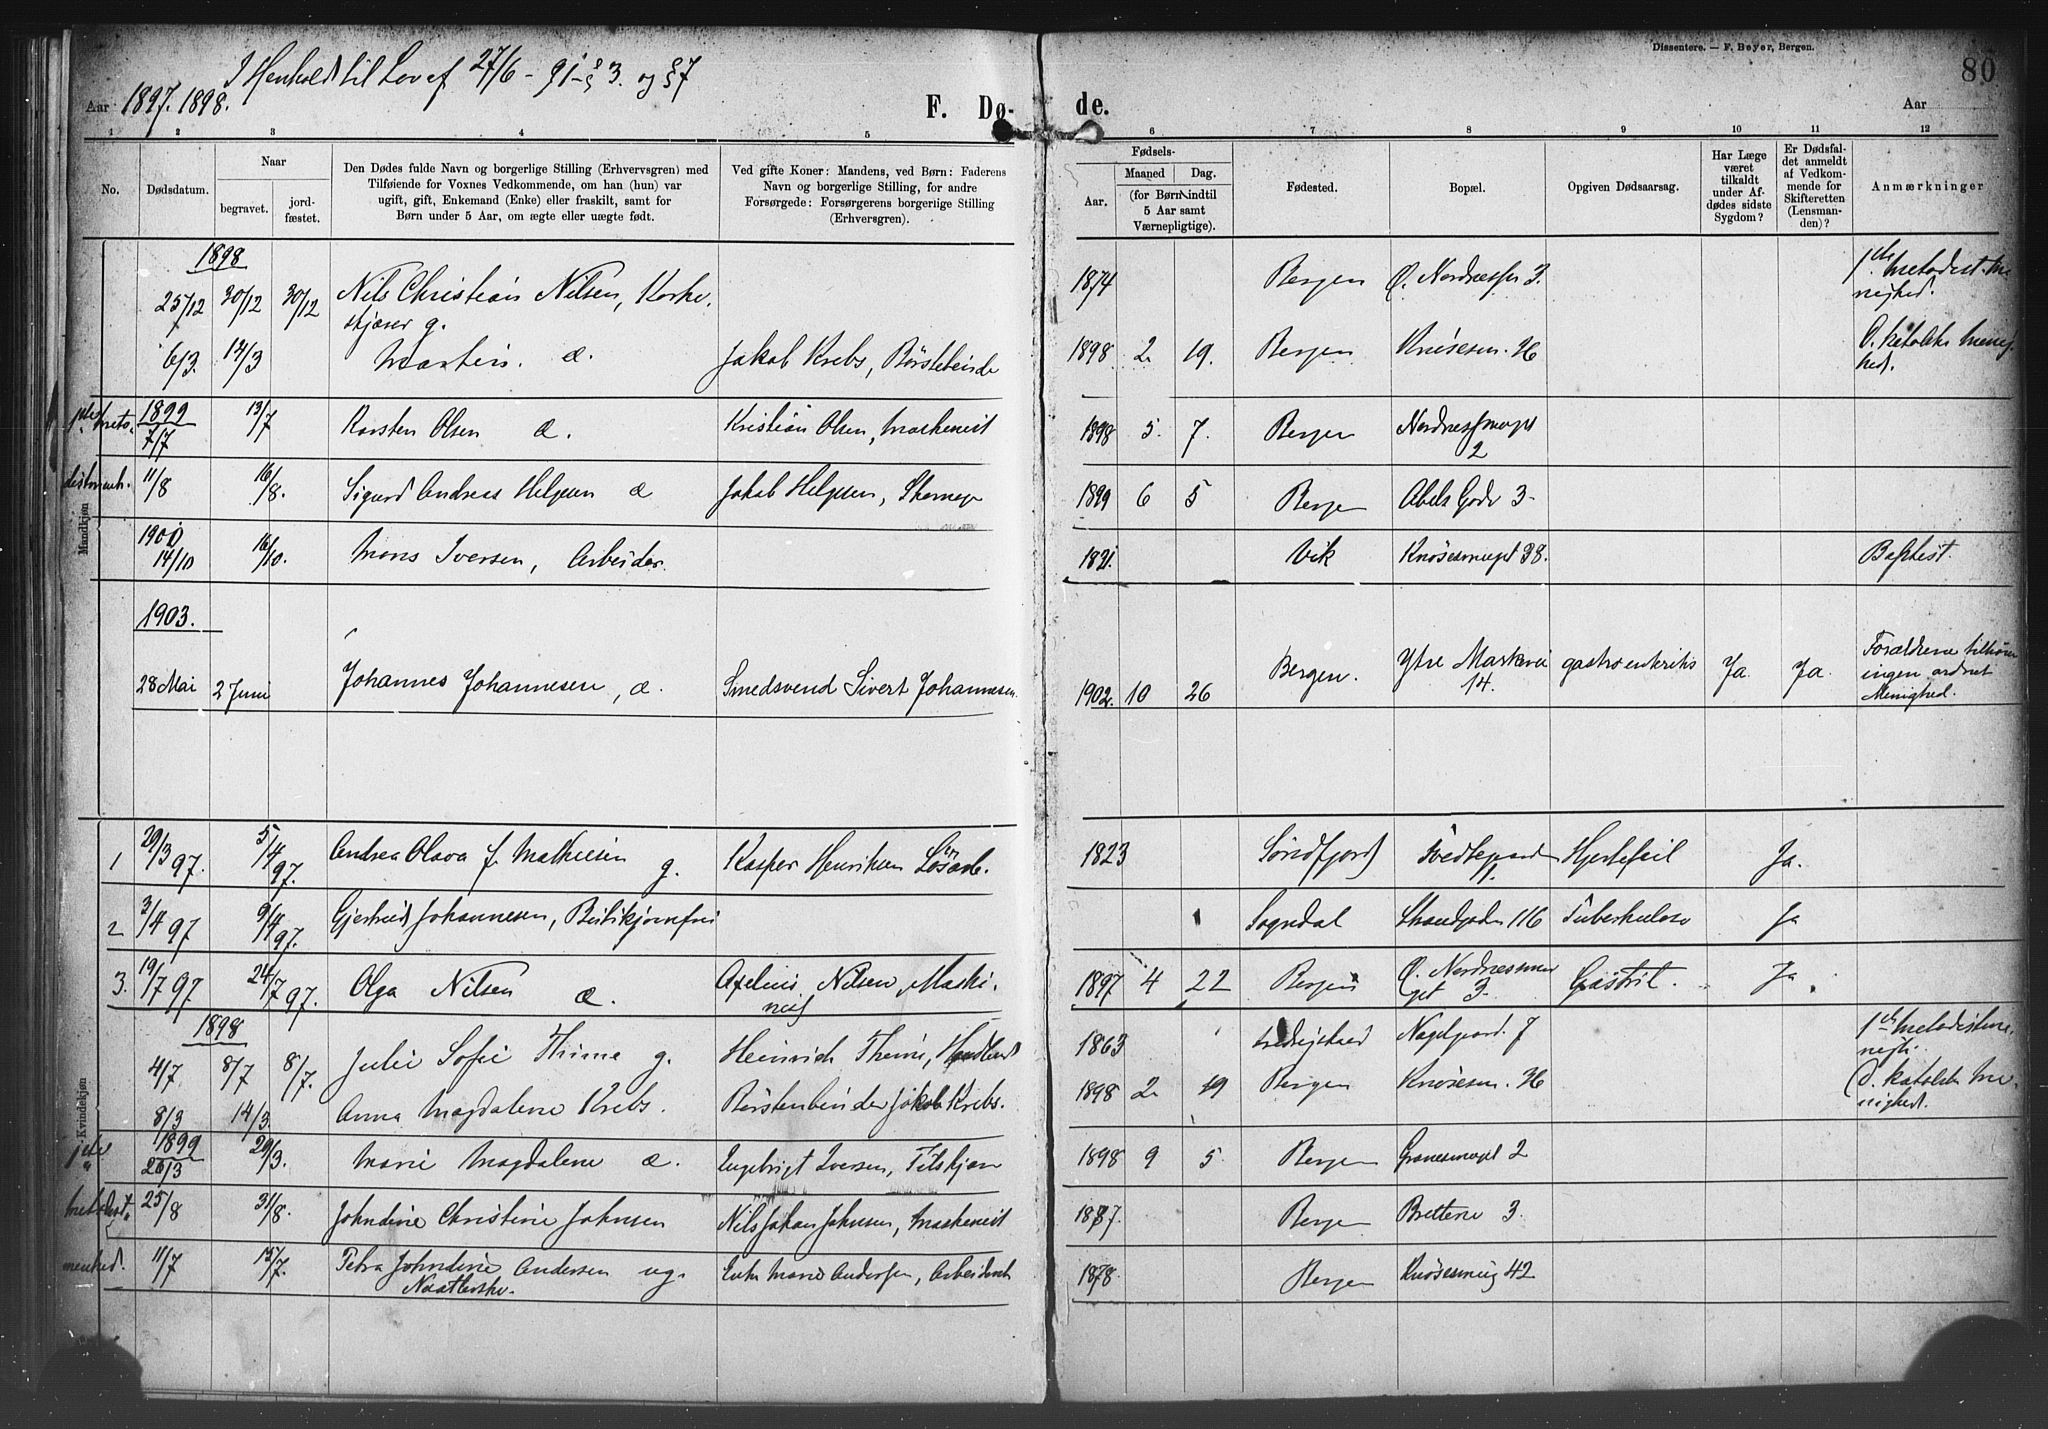 Dissentere. — F. Beyer, Bergen.
80
I Henhold til Lov af 27/6 - 91 - § 3. og § 7
Aar 1897. 1898.
F. Dø-
de.
Aar
1 2 3 4 5 6 7 8 9 10 11 12
No.
Dødsdatum.
Naar
begravet.
jord-
fæstet.
Den Dødes fulde Navn og borgerlige Stilling (Erhvervsgren) med
Tilføiende for Voxnes Vedkommende, om han (hun) var
ugift, gift, Enkemand (Enke) eller fraskilt, samt for
Børn under 5 Aar, om ægte eller uægte født.
Ved gifte Koner: Mandens, ved Børn: Faderens
Navn og borgerlige Stilling, for andre
Forsørgede: Forsørgerens borgerlige Stilling
(Erhversgren).
Fødsels-
Aar.
Maaned
Dag.
(for Børn indtil
5 Aar samt
Værnepligtige).
Fødested.
Bopæl.
Opgiven Dødsaarsag.
Har Læge
været
tilkaldt
under Af-
dødes sidste
Sygdom?
Er Dødsfal-
det anmeldt
af Vedkom-
mende for
Skifteretten
(Lensman-
den)?
Anmærkninger
Mandkjøn
1898
25/12 30/12 30/12 Nils Christian Nilsen, Korke. 1874 Bergen Ø. Nordnessm 3. 1ste Metodist. Me
skjærer g. nighed.
6/3. 14/3 Martin. æ. Jakob Krebs, Børstebinde 1898 2 19. Bergen Knøsesm. 36 D. katolske Menig
hed.
1ste Meto-
1899
7/7 13/7 Karsten Olsen æ. Kristian Olsen, Maskenist 1898 5. 7. Bergen Nordnessmuget
2
distmenh. 11/8 16/8. Sigurd Andreas Helgesen æ Jakob Helgesen, 1899 6 5 Bergen Abels Gade 3
1900
14/10 16/10. Mons Iversen, Arbeider. 1821. Vik Knøsesmuget 38. Baptist.
1903.
28 Mai 2 Juni Johannes Johannesen, æ. Smedsvend Sivert Johannesen. 1902. 10 26 Bergen. Ytre Markevei gastroenteritis Ja. Ja. Forældrene tilhører
14. ingen ordnet
Menighed.
Kvindekjøn
1 29/3 97. 5/4 97. Andrea Olava f. Mathiesen g. Kasper Henriksen Løsarb. 1823 Søndfjord Tvedtegaard Hjertefeil Ja.
11.
2 3/4 97 9/4 97. Gjertrud Johannesen, Sogndal Strandgaden 116 Tuberkulose Ja
3. 19/7 97 24/7 97. Olga Nilsen æ. Axelius Nilsen, Maski- 1897 4 22 Bergen Ø. Nordnesmu Gastrit. Ja
nist get 3.
1898
4/7 8/7 8/7. Julie Sofie Thime g. Heinrich Thime, 1863 Fredrikstad Nagelgaard. 7 1ste Metodistme
nigh.
8/3 14/3. Anna Magdalene Krebs. Børstenbinder Jakob Krebs. 1898 2 19 Bergen Knøsesm. 36 D. katolske Me-
nighed.
1ste
1899
26/3 29/3. Marie Magdalene æ. Engebrigt Iversen, 1898 9 5 Bergen Granesmuget 2
Metodist- 25/8 31/8. Johndine Christine Johnsen Nils Johan Johnsen, Maskenist Bergen Brettene 3.
menhed. 11/7 15/7. Petra Johndine Andersen ug. Enke Marie Andersen, 1878. Bergen Knøsesmug 42